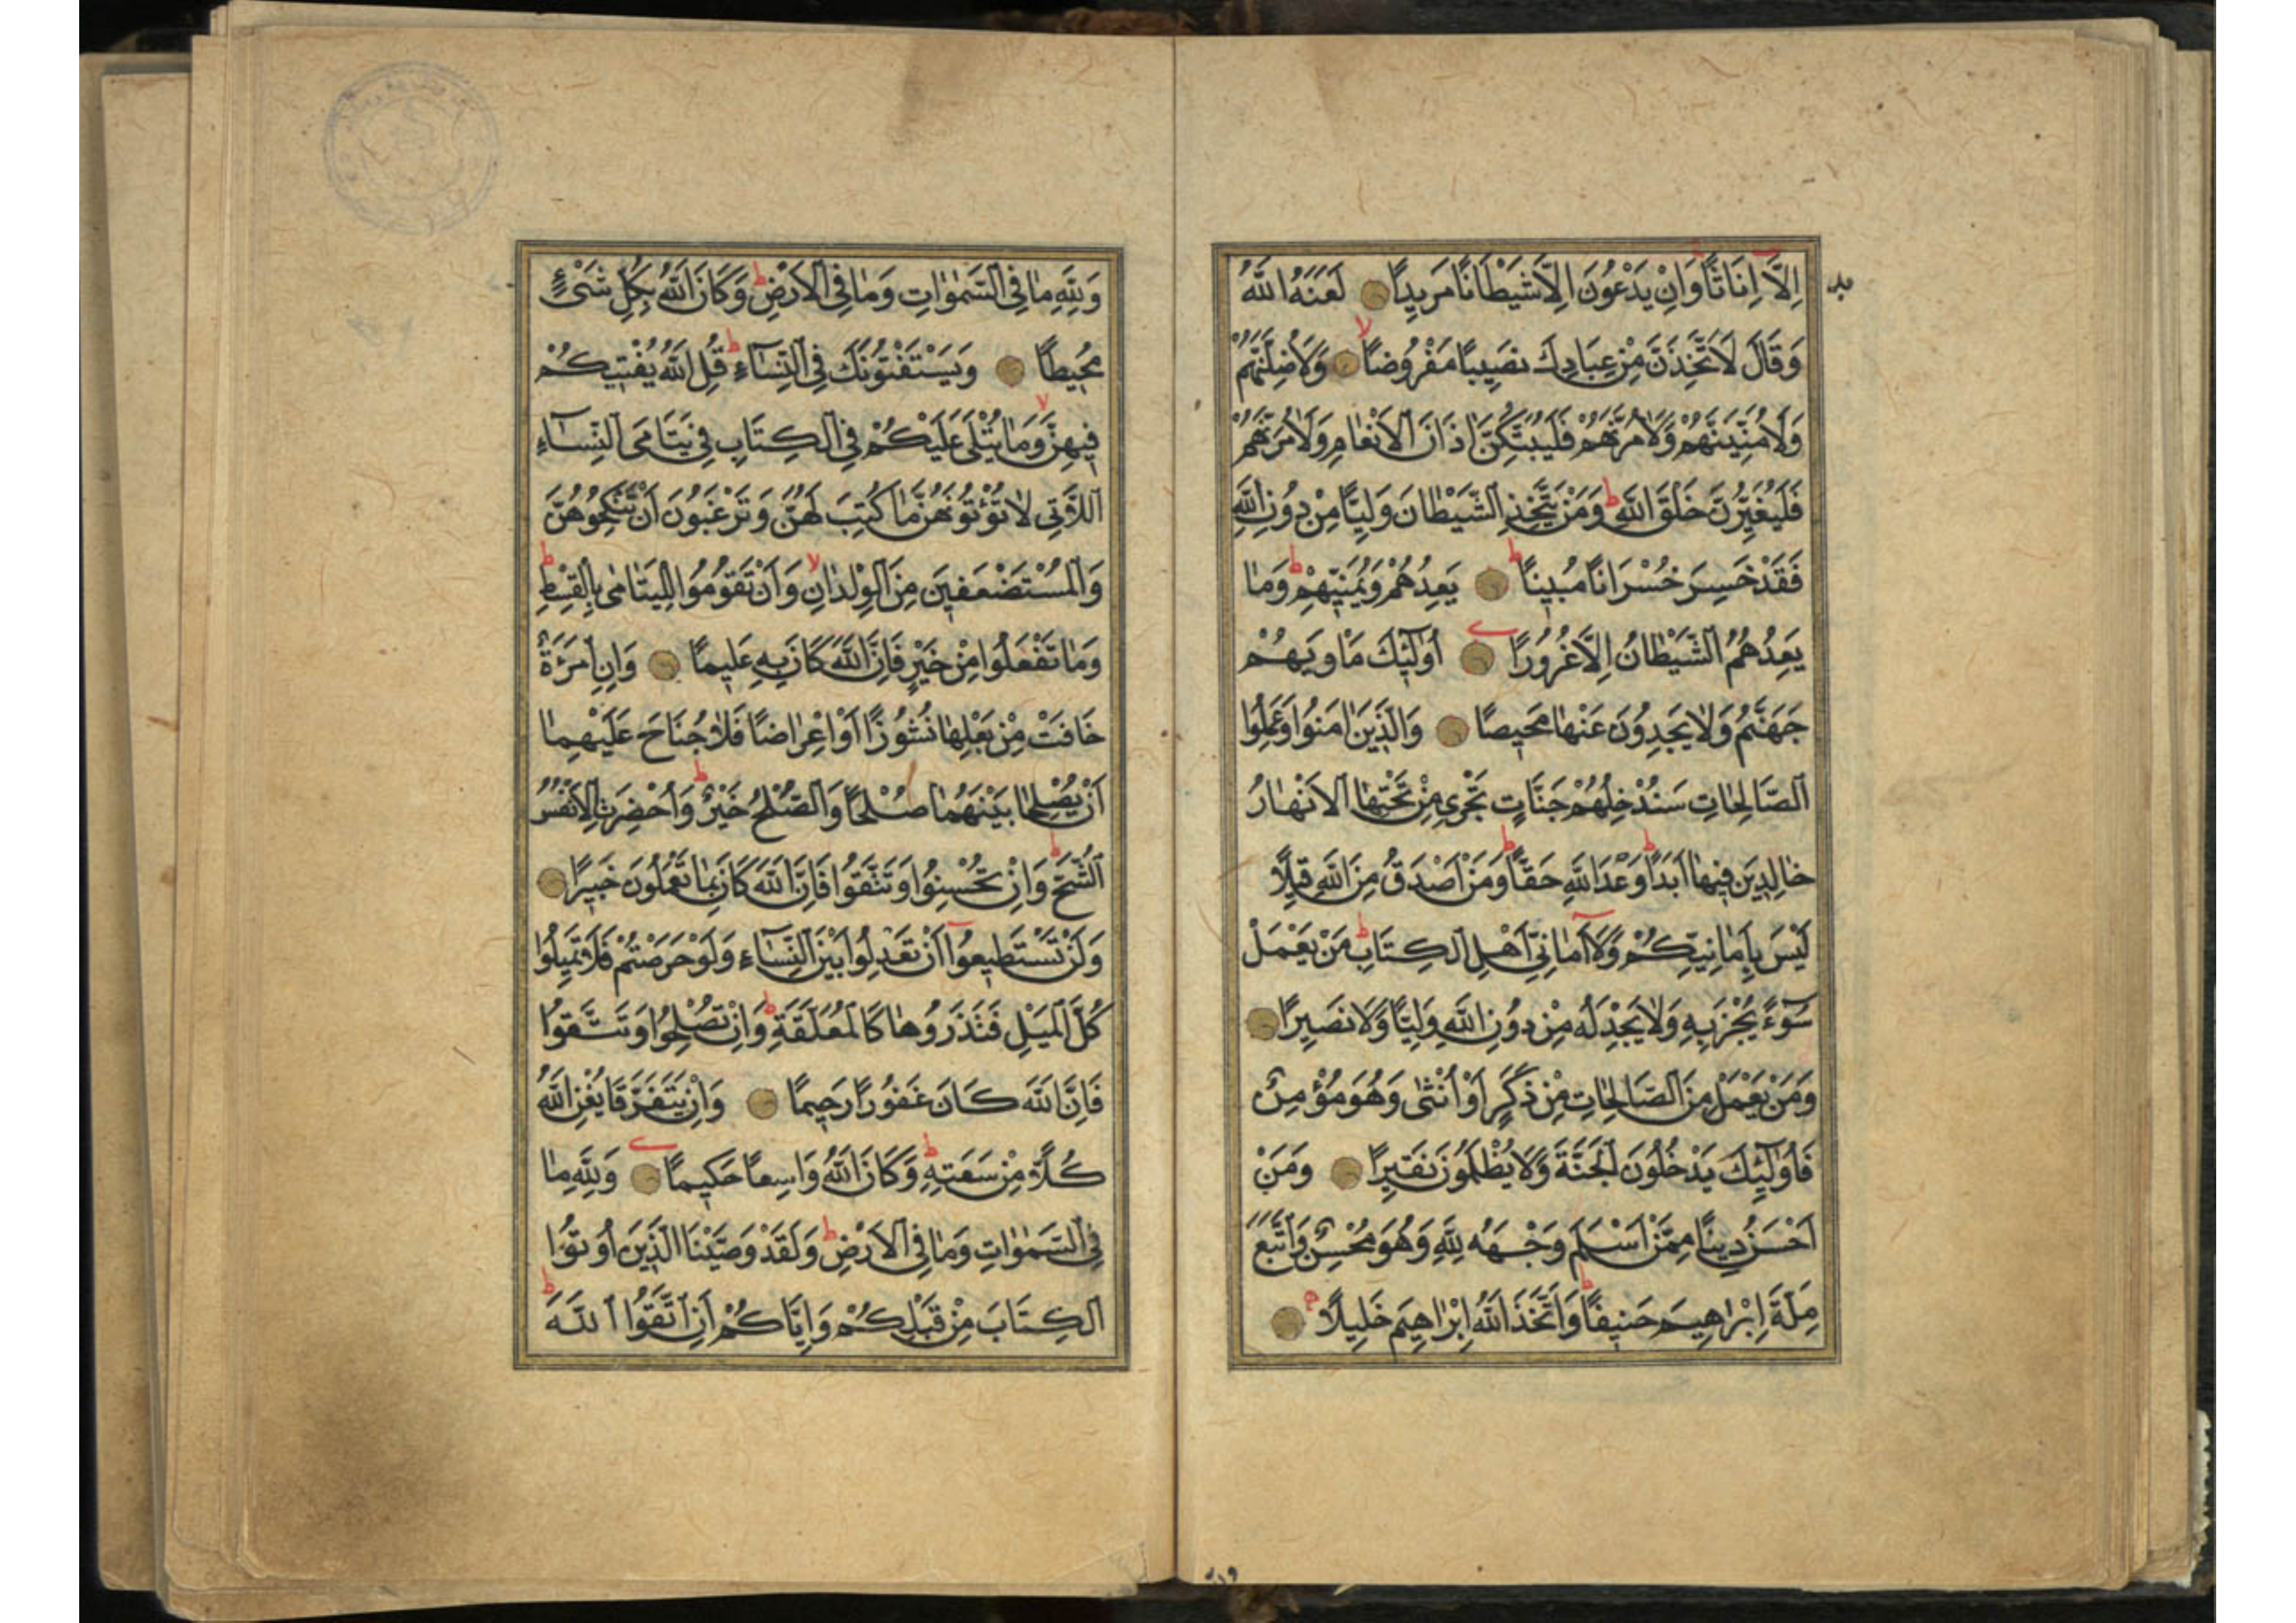 اِلَّا اِنَاثًا وَاِنْ يَدْعُونَ اِلَّا شَيْطَانًا مَرِيدًا لَعَنَهُ اللّٰهُ
وَقَالَ لَاَتَّخِذَنَّ مِنْ عِبَادِكَ نَصِيبًا مَفْرُوضًا وَلَاُضِلَّنَّهُمْ
وَلَاُمَنِّيَنَّهُمْ وَلَاٰمُرَنَّهُمْ فَلَيُبَتِّكُنَّ اٰذَانَ الْاَنْعَامِ وَلَاٰمُرَنَّهُمْ
فَلَيُغَيِّرُنَّ خَلْقَ اللّٰهِ وَمَنْ يَتَّخِذِ الشَّيْطَانَ وَلِيًّا مِنْ دُونِ اللّٰهِ
فَقَدْ خَسِرَ خُسْرَانًا مُبِينًا يَعِدُهُمْ وَيُمَنِّيهِمْ وَمَا
يَعِدُهُمُ الشَّيْطَانُ اِلَّا غُرُورًا اُولٰئِكَ مَأْوٰيهُمْ
جَهَنَّمُ وَلَا يَجِدُونَ عَنْهَا مَحِيصًا وَالَّذِينَ اٰمَنُوا وَعَمِلُوا
الصَّالِحَاتِ سَنُدْخِلُهُمْ جَنَّاتٍ تَجْرِي مِنْ تَحْتِهَا الْاَنْهَارُ
خَالِدِينَ فِيهَا اَبَدًا وَعْدَ اللّٰهِ حَقًّا وَمَنْ اَصْدَقُ مِنَ اللّٰهِ قِيلًا
لَيْسَ بِاَمَانِيِّكُمْ وَلَا اَمَانِيِّ اَهْلِ الْكِتَابِ مَنْ يَعْمَلْ
سُوءًا يُجْزَ بِهِ وَلَا يَجِدْ لَهُ مِنْ دُونِ اللّٰهِ وَلِيًّا وَلَا نَصِيرًا
وَمَنْ يَعْمَلْ مِنَ الصَّالِحَاتِ مِنْ ذَكَرٍ اَوْ اُنْثٰى وَهُوَ مُؤْمِنٌ
فَاُولٰئِكَ يَدْخُلُونَ الْجَنَّةَ وَلَا يُظْلَمُونَ نَقِيرًا وَمَنْ
اَحْسَنُ دِينًا مِمَّنْ اَسْلَمَ وَجْهَهُ لِلّٰهِ وَهُوَ مُحْسِنٌ وَاتَّبَعَ
مِلَّةَ اِبْرٰاهِيمَ حَنِيفًا وَاتَّخَذَ اللّٰهُ اِبْرٰاهِيمَ خَلِيلًا
وَلِلّٰهِ مَا فِي السَّمٰوَاتِ وَمَا فِي الْاَرْضِ وَكَانَ اللّٰهُ بِكُلِّ شَيْءٍ
مُحِيطًا وَيَسْتَفْتُونَكَ فِي النِّسَاءِ قُلِ اللّٰهُ يُفْتِيكُمْ
فِيهِنَّ وَمَا يُتْلٰى عَلَيْكُمْ فِي الْكِتَابِ فِي يَتَامَى النِّسَاءِ
اللَّاتِي لَا تُؤْتُونَهُنَّ مَا كُتِبَ لَهُنَّ وَتَرْغَبُونَ اَنْ تَنْكِحُوهُنَّ
وَالْمُسْتَضْعَفِينَ مِنَ الْوِلْدَانِ وَاَنْ تَقُومُوا لِلْيَتَامٰى بِالْقِسْطِ
وَمَا تَفْعَلُوا مِنْ خَيْرٍ فَاِنَّ اللّٰهَ كَانَ بِهِ عَلِيمًا وَاِنِ امْرَاَةٌ
خَافَتْ مِنْ بَعْلِهَا نُشُوزًا اَوْ اِعْرَاضًا فَلَا جُنَاحَ عَلَيْهِمَا
اَنْ يُصْلِحَا بَيْنَهُمَا صُلْحًا وَالصُّلْحُ خَيْرٌ وَاُحْضِرَتِ الْاَنْفُسُ
الشُّحَّ وَاِنْ تُحْسِنُوا وَتَتَّقُوا فَاِنَّ اللّٰهَ كَانَ بِمَا تَعْمَلُونَ خَبِيرًا
وَلَنْ تَسْتَطِيعُوا اَنْ تَعْدِلُوا بَيْنَ النِّسَاءِ وَلَوْ حَرَصْتُمْ فَلَا تَمِيلُوا
كُلَّ الْمَيْلِ فَتَذَرُوهَا كَالْمُعَلَّقَةِ وَاِنْ تُصْلِحُوا وَتَتَّقُوا
فَاِنَّ اللّٰهَ كَانَ غَفُورًا رَحِيمًا وَاِنْ يَتَفَرَّقَا يُغْنِ اللّٰهُ
كُلًّا مِنْ سَعَتِهِ وَكَانَ اللّٰهُ وَاسِعًا حَكِيمًا وَلِلّٰهِ مَا
فِي السَّمٰوَاتِ وَمَا فِي الْاَرْضِ وَلَقَدْ وَصَّيْنَا الَّذِينَ اُوتُوا
الْكِتَابَ مِنْ قَبْلِكُمْ وَاِيَّاكُمْ اَنِ اتَّقُوا اللّٰهَ